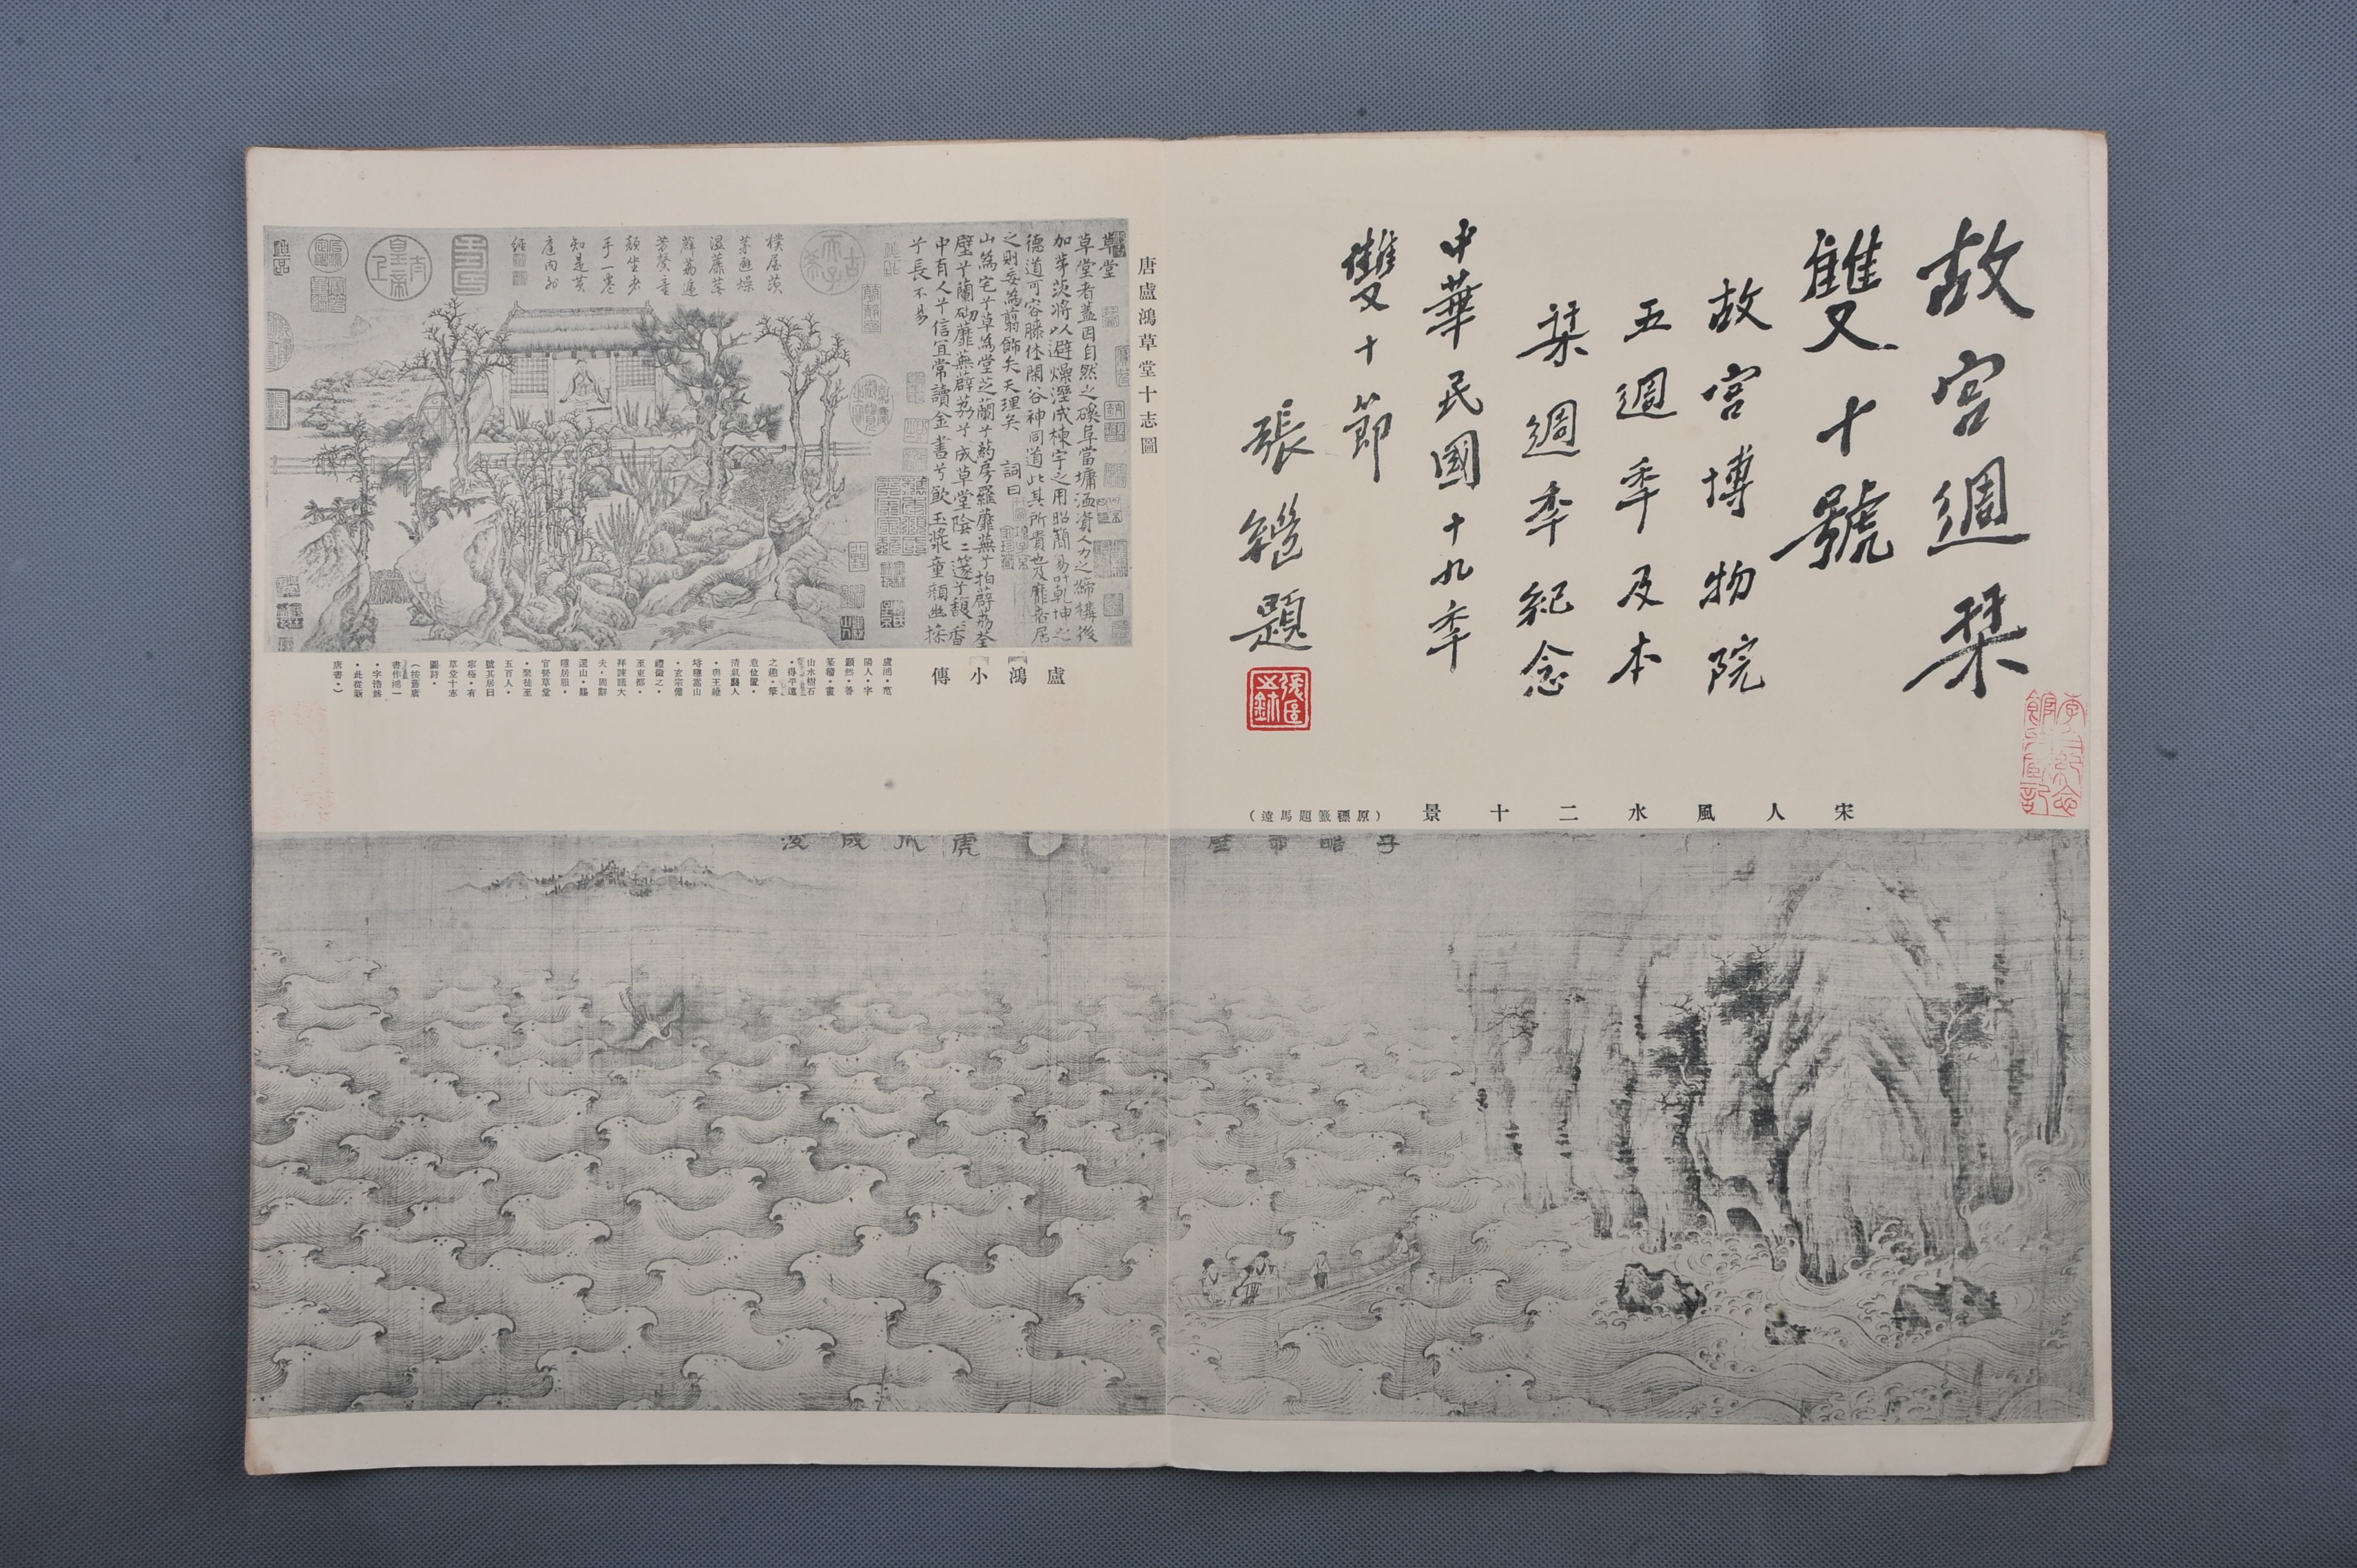 故宮週栞
雙十號
故宮博物院
五週年及本
栞週年紀念
中華民國十九年
雙十節
張繼題
宋人風水二十景
（原標籤題馬遠）
唐盧鴻草堂十志圖
草堂
草堂者蓋因自然之磎阜當墉洫資人力之締構後
加茅茨將以避燥溼成棟宇之用昭簡易叶乾坤之
德道可容膝休閑谷神同道此其所貴也及靡者居
之則妄為翦飾失天理矣 詞曰
山為宅兮草為堂芝蘭兮葯房羅蘼蕪兮拍薜荔荃
壁兮蘭砌蘼蕪薜荔兮成草堂陰陰邃兮馥馥香
中有人兮信宜常讀金書兮飲玉漿童顏幽操
兮長不易
樸屋茨
茅遊燥
溫蘼蕪
薜荔遶
手一卷
知是黃
庭內外
經
盧鴻小傳
盧鴻・范
陽人・字
顥然・善
篆籀・畫
山水樹石
・得平遠
之趣・筆
意位置・
清氣襲人
・與王維
埒隱嵩山
・玄宗備
禮徵之・
至東都・
拜諫議大
夫・固辭
還山・賜
隱居服・
官營草堂
・聚徒至
五百人・
號其居曰
寧極・有
草堂十志
圖詩・
（按舊唐
書作鴻一
・字浩然
・此從新
唐書・）